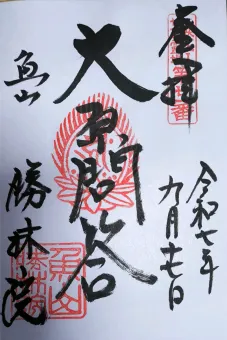 奉拝
令和七年
九月十七日
大原問答
魚山
勝林院